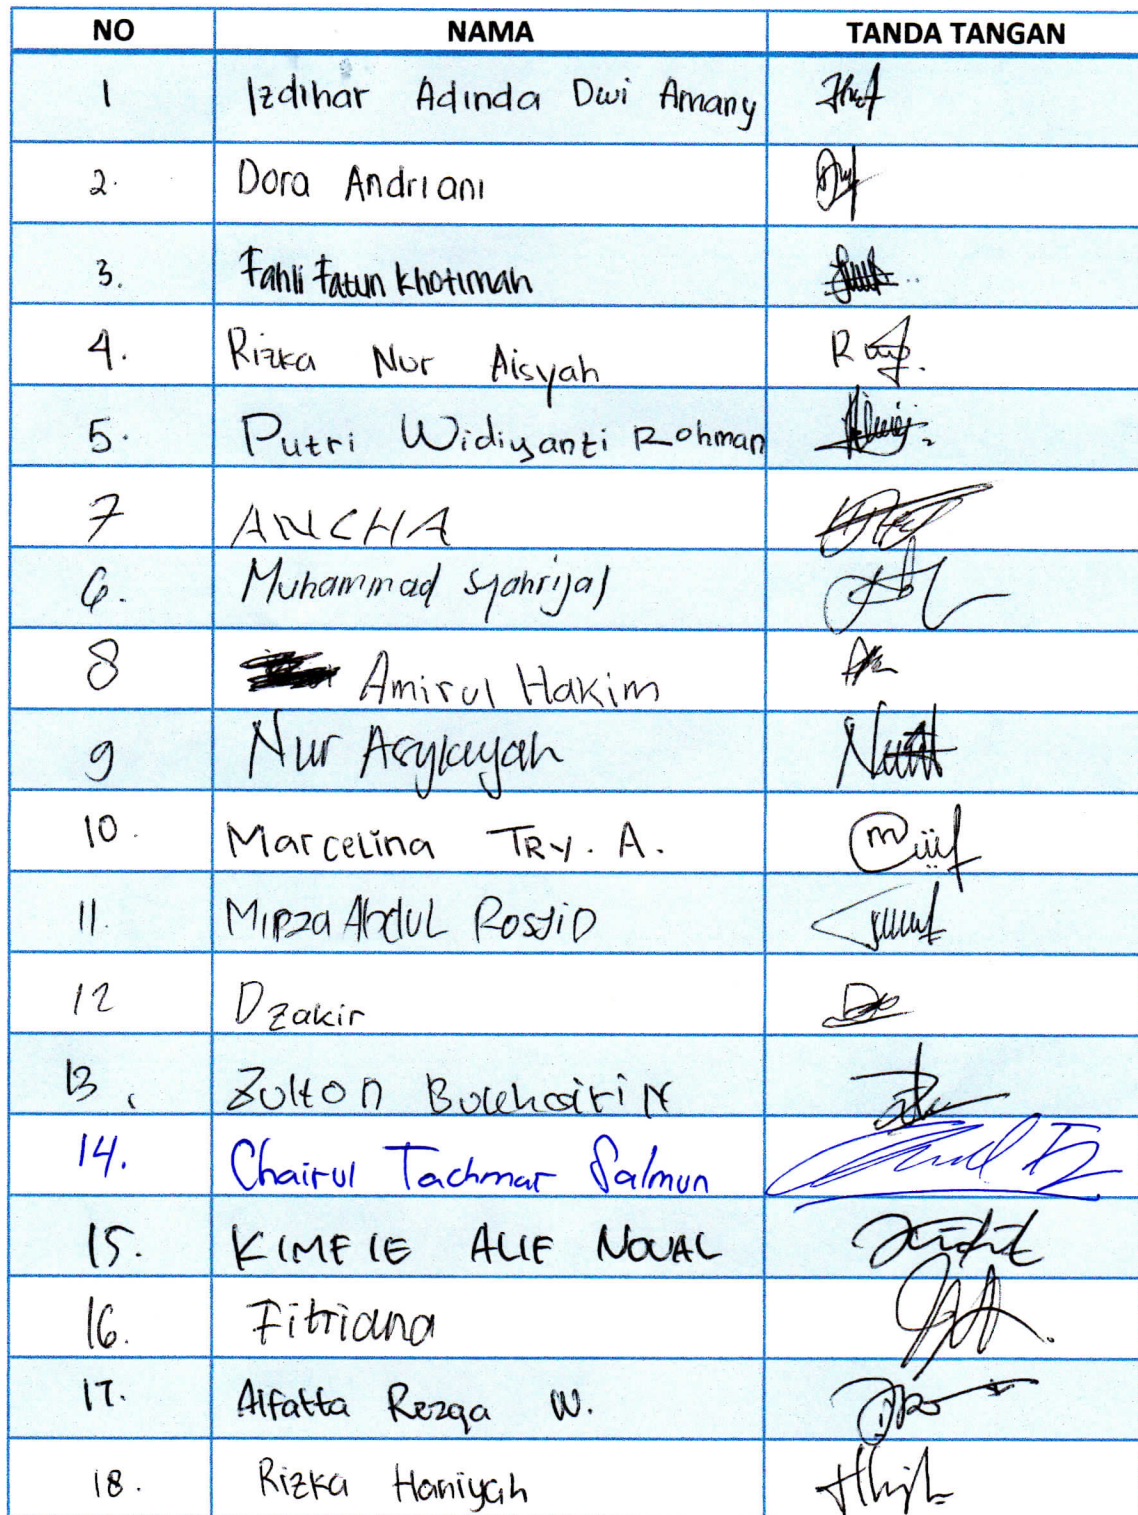 NO NAMA TANDA TANGAN
1 Izdihar Adinda Dwi Amany
2. Dora Andriani
3. Fahli Fatun Khotimah
4. Rizka Nur Aisyah
5. Putri Widiyanti Rohman
7 ANCHA
6. Muhammad Syahrijal
8 Amirul Hakim
9 Nur
10. Marcelina TRY. A.
11. Mirza Abdul Rosyid
12 Dzakir
13. Zulton
14. Chairul Tachmar Salmun
15. KIMFIE ALIF NOVAL
16. Fitriana
17. Alfatta Rezqa W.
18. Rizka Haniyah